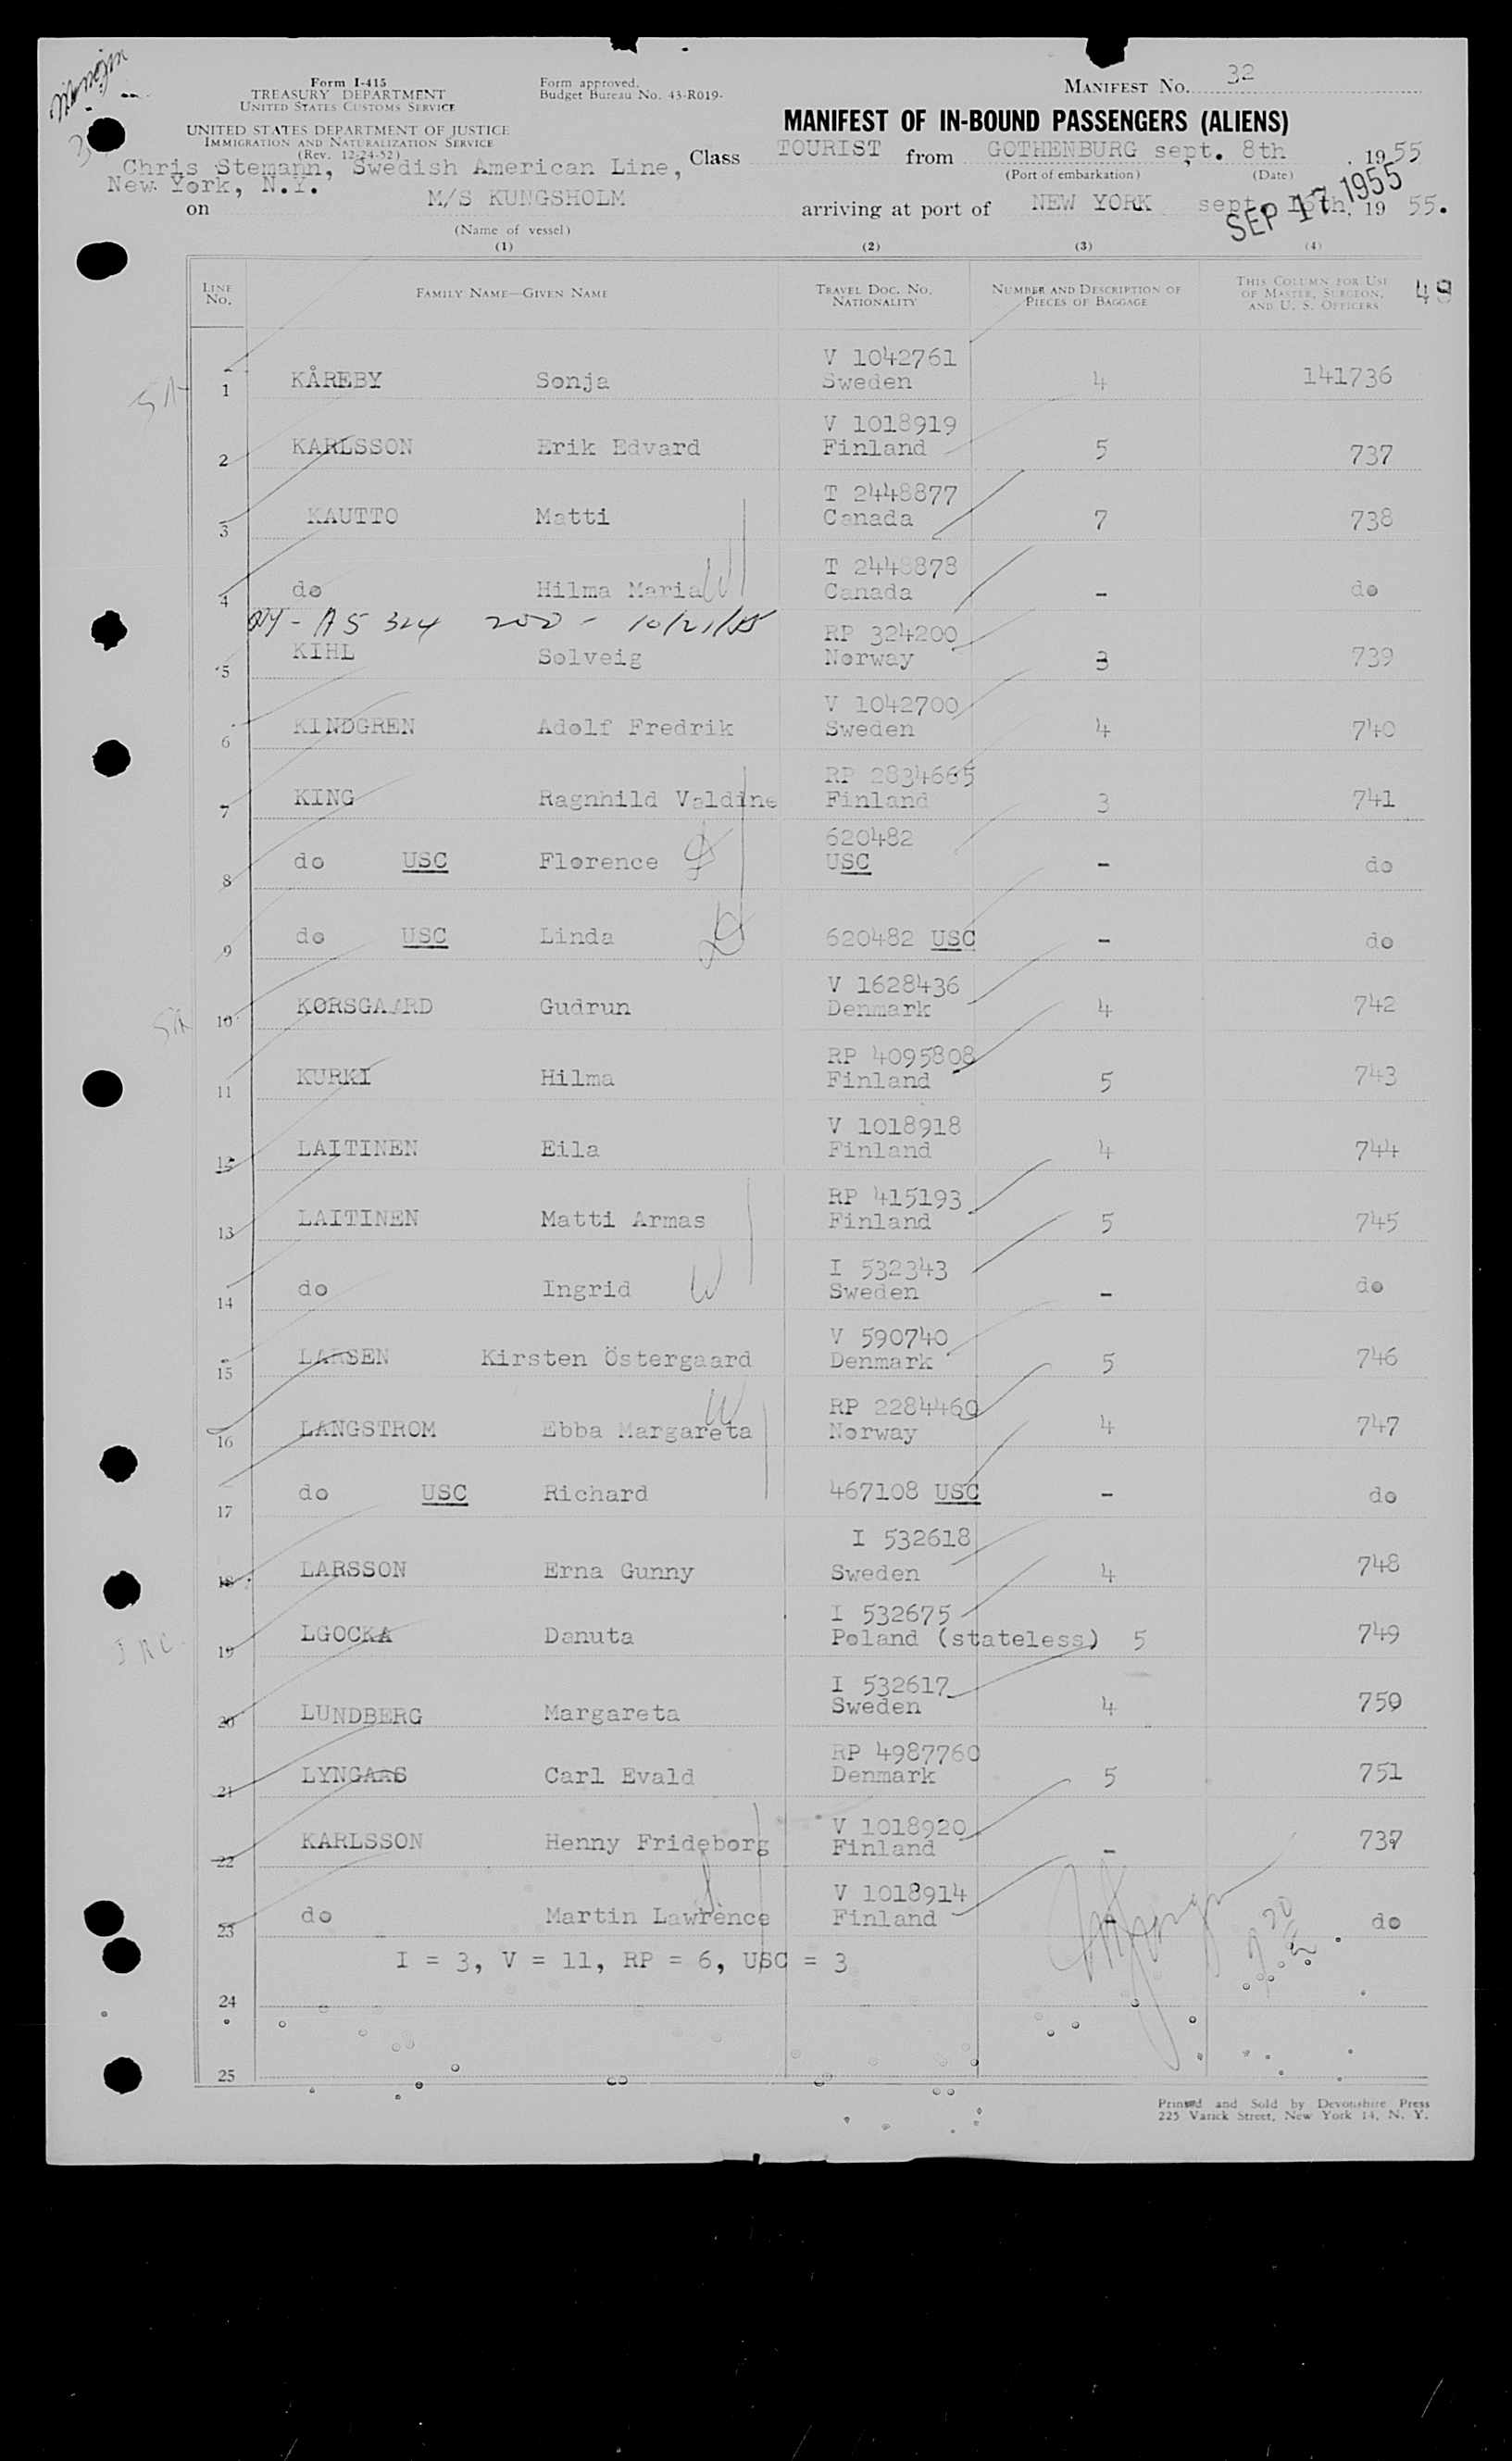 Form I-415
TREASURY DEPARTMENT
UNITED STATES CUSTOMS SERVICE
Form approved.
Budget Bureau No. 43-R019-
MANIFEST NO. 32
UNITED STATES DEPARTMENT OF JUSTICE
IMMIGRATION AND NATURALIZATION SERVICE
(Rev. 12-24-52)
MANIFEST OF IN-BOUND PASSENGERS (ALIENS)
Chris Stemann, Swedish American Line,
New York, N.Y.
Class TOURIST from GOTHENBURG, sept. 8th, 1955
(Port of embarkation) (Date)
on M/S KUNGSHOLM arriving at port of NEW YORK sept. 16th, 1955.
SEP 17 1955
(Name of vessel)
(1) (2) (3) (4)
LINE NO. FAMILY NAME—GIVEN NAME TRAVEL DOC. NO. NATIONALITY NUMBER AND DESCRIPTION OF PIECES OF BAGGAGE THIS COLUMN FOR USE OF MASTER, SURGEON, AND U. S. OFFICERS 49
1 KÅREBY Sonja V 1042761 Sweden 4 141736
2 KARLSSON Erik Edvard V 1018919 Finland 5 737
3 KAUTTO Matti T 2448877 Canada 7 738
4 do Hilma Maria T 2448878 Canada - do
NY - A5 324 200 - 10/21/55
5 KIHL Solveig RP 324200 Norway 3 739
6 KINDGREN Adolf Fredrik V 1042700 Sweden 4 740
7 KING Ragnhild Valdine RP 2834665 Finland 3 741
8 do USC Florence 620482 USC - do
9 do USC Linda 620482 USC - do
10 KORSGAARD Gudrun V 1628436 Denmark 4 742
11 KURKI Hilma RP 4095808 Finland 5 743
12 LAITINEN Eila V 1018918 Finland 4 744
13 LAITINEN Matti Armas RP 415193 Finland 5 745
14 do Ingrid I 532343 Sweden - do
15 LARSEN Kirsten Östergaard V 590740 Denmark 5 746
16 LANGSTROM Ebba Margareta RP 2284460 Norway 4 747
17 do USC Richard 467108 USC - do
18 LARSSON Erna Gunny I 532618 Sweden 4 748
19 LGOCKA Danuta I 532675 Poland (stateless) 5 749
20 LUNDBERG Margareta I 532617 Sweden 4 750
21 LYNGAAS Carl Evald RP 4987760 Denmark 5 751
22 KARLSSON Henny Frideborg V 1018920 Finland - 737
23 do Martin Lawrence V 1018914 Finland - do
I = 3, V = 11, RP = 6, USC = 3
24
25
Printed and Sold by Devonshire Press
225 Varick Street, New York 14, N. Y.